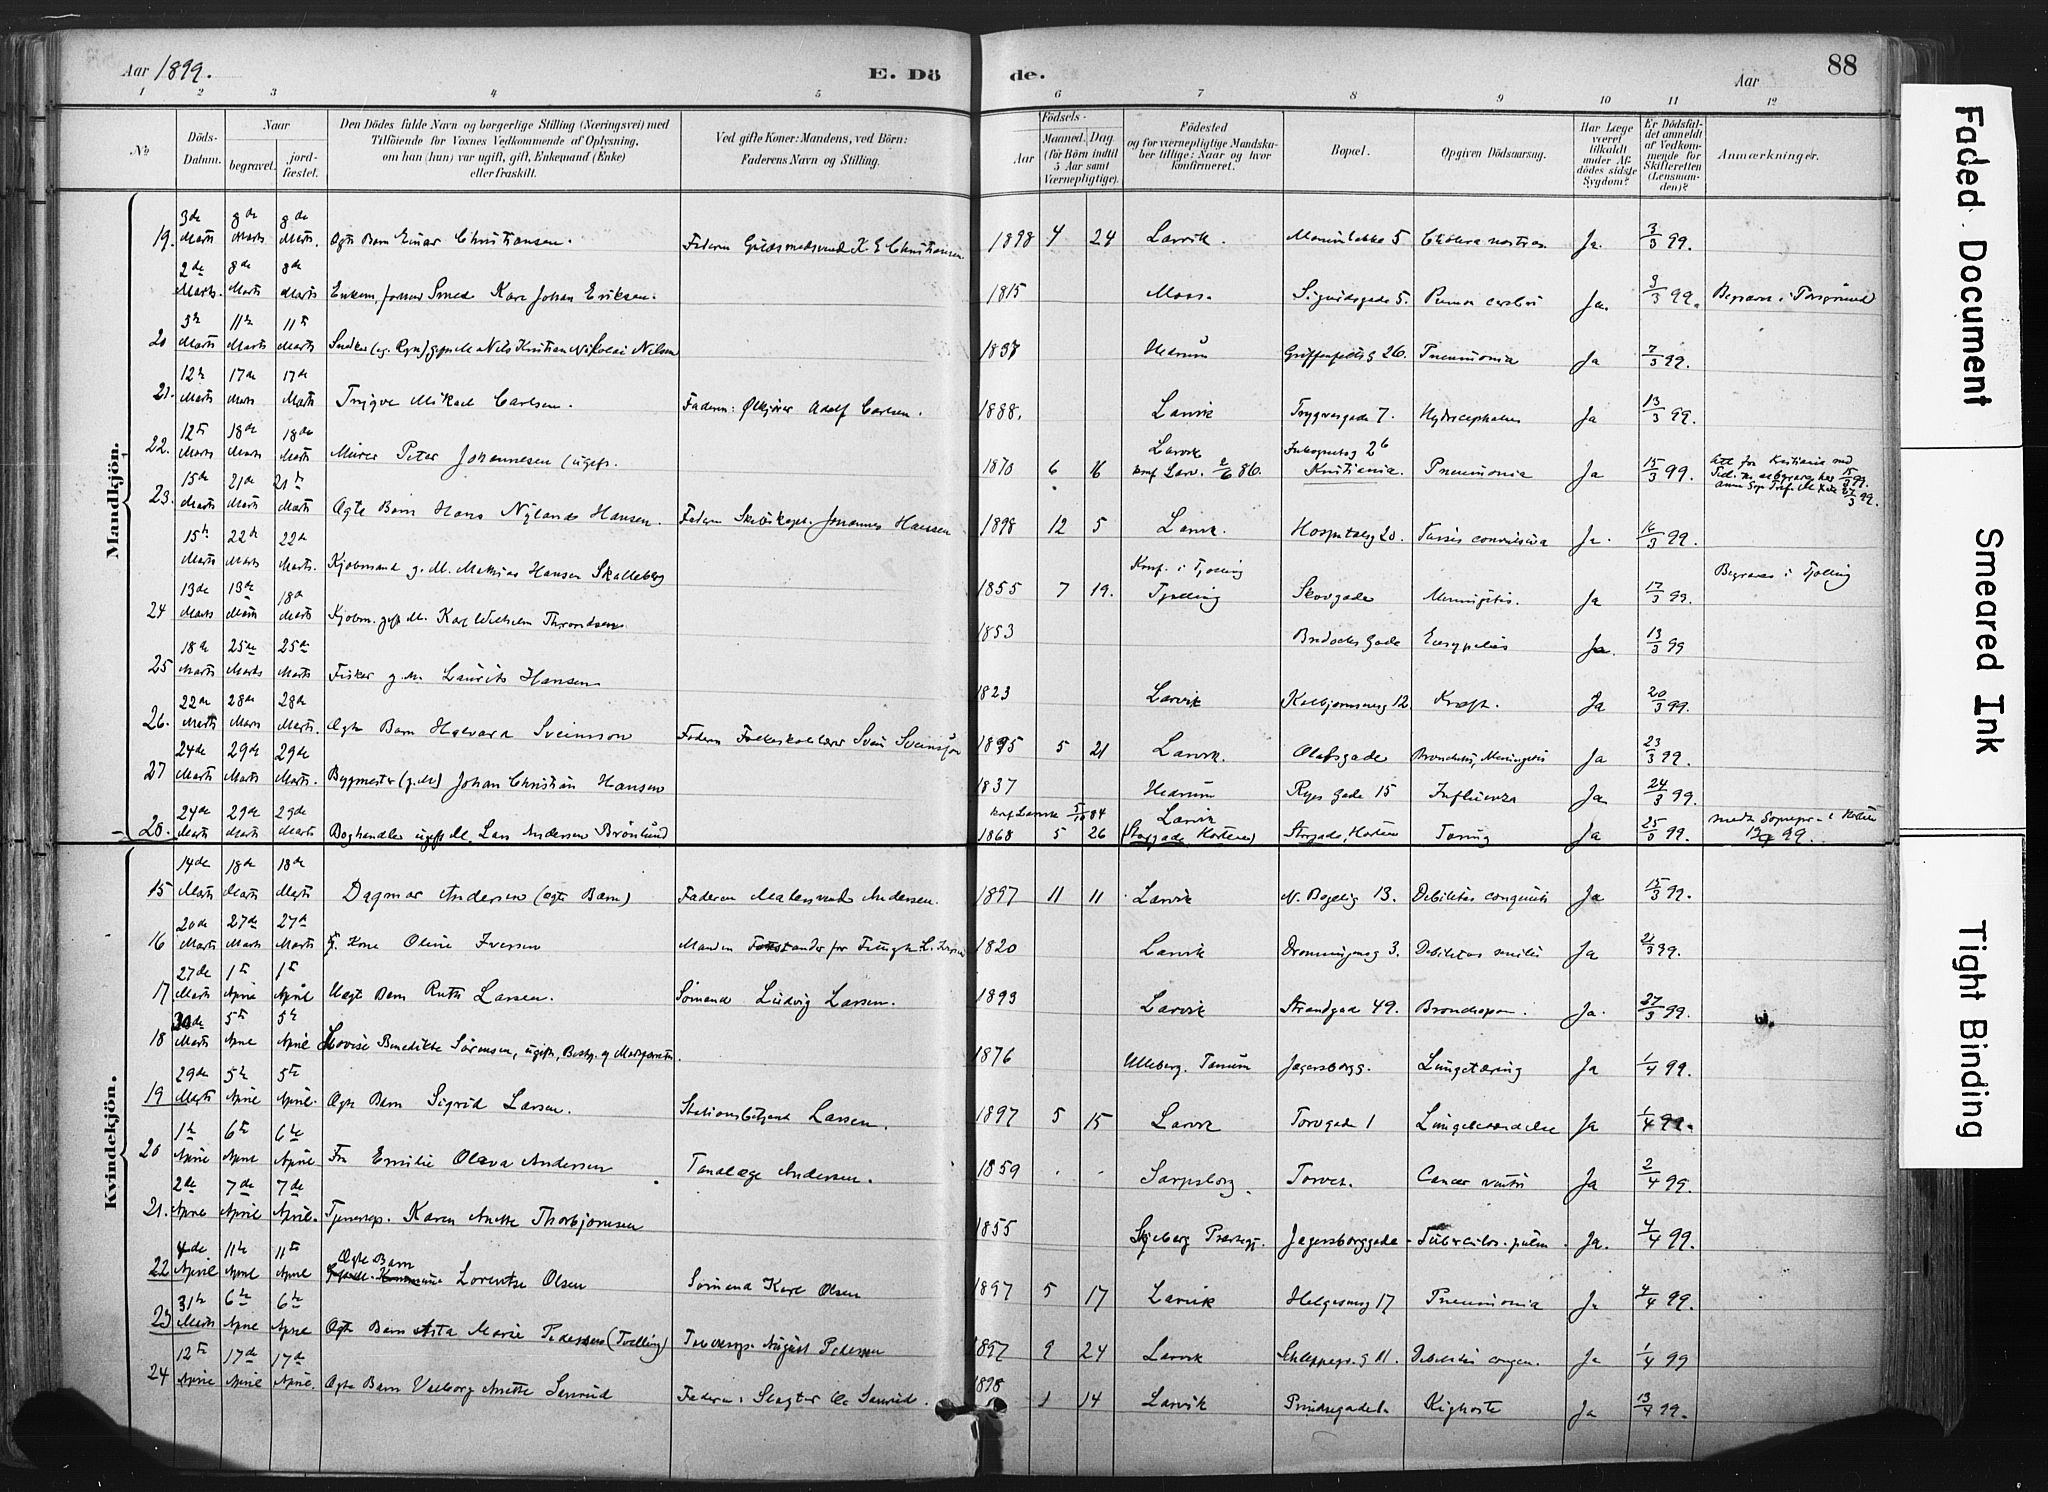 Aar 1899.
E. Döde.
Aar
88
1 2 3 4 5 6 7 8 9 10 11 12
No
Döds-Datum.
Naar
begravet.
jord-fæstet.
Den Dödes fulde Navn og borgerlige Stilling (Næringsvei) med
Tilföiende for Voxnes Vedkommende af Oplysning,
om han (hun) var ugift, gift, Enkemand (Enke)
eller fraskilt.
Ved gifte Koner: Mandens, ved Börn:
Faderens Navn og Stilling.
Födsels-
Aar
Maaned. Dag.
(for Börn indtil
5 Aar samt
Værnepligtige).
Födested
og for værnepligtige Mandska-
ber tillige: Naar og hvor
konfirmeret.
Bopæl.
Opgiven Dödsaarsag.
Har Læge
været
tilkaldt
under Af-
dödes sidste
Sygdom?
Er Dödsfal-
det anmeldt
af Vedkom-
mende for
Skifteretten
(Lensman-
den)?
Anmærkninger.
Mandkjön.
19. 3de Marts 8de Marts 8de Marts. Ægte Barn Einar Christiansen. Faderen Guldsmedsvend K E Christiansen 1898 4 24 Larvik. 5 Cholera nostras Ja. 3/3 99.
2de Marts. 8de Marts 8de Marts Enkem. Smed Karl Johan Eriksen. 1815 Moss. Sigurdsgade 5. Ja. 3/3 99. Begraves i Porsgrund
20 3de Marts 11te Marts 11te Marts Nils Kristian Nikolai Nilsen 1837 Hedrum Griffenfeldts g 26. Pneumonia Ja 7/3 99.
21. 12te Marts 17de Marts 17de Marts Trygve Mikael Carlsen. Faderen: Adolf Carlsen. 1888. Larvik Trygvesgade 7. Hydrocephalus Ja 13/3 99.
22. 12te Marts 18de Marts 18de Marts Murer Peter Johannesen (ugift. 1870 6 16 Larvik konf. Larv. 86. Kristiania. Pneumonia Ja 15/3 99.
23. 15de Marts 21de Marts 21de Marts Ægte Barn Hans Nylands Hansen. Faderen Johannes Hansen 1898 12 5 Larvik. Hospitalsg 20. Tussis convulsiva Ja. 16/3 99.
15de Marts 22de Marts 22de Marts. Kjöbmand g. M. Mathias Hansen Skalleberg 1855 7 19. Konf. i Tjolling Tjolling Skovgade Meningitis. Ja 17/3 99. Begraves i Tjolling
24 13de Marts 13de Marts 18de Marts Kjöbm. gift M. Karl Wilhelm Throndsen 1853 Gade Erysipelas Ja. 13/3 99
25 18de Marts 25de Marts 25de Marts Fisker g. M. Laurits Hansen 1823 Larvik Kolbjørnsensg 12. Kræft. Ja 20/3 99.
26. 22de Marts 28de Marts 28de Marts. Ægte Barn Halvard Sveinsson Faderen Folkeskolelærer Svein Sveinsson 1895 5 21 Larvik. Olafsgade Meningitis Ja 23/3 99.
27 24de Marts 29de Marts 29de Marts. Bygmester (g. M) Johan Christian Hansen 1837 Hedrum Ryes Gade 15 Influenza Ja 24/3 99.
28. 24de Marts 29de Marts 29de Marts Boghandler ugift M. Lars Andersen Brönlund 1868 5 26 konf Larvik 84 Larvik (Storgade Horten) Storgade, Horten Tæring Ja 25/3 99.
Kvindekjön.
15 14de Marts 18de Marts 18de Marts Dagmar Andersen (ægte Barn) Faderen Malersvend Andersen. 1897 11 11 Larvik 13. Debilitas congenita Ja 15/3 99.
16 20de Marts 27de Marts 27de Marts G. Kone Oline Iversen Manden Forstander for 1820 Larvik Dronningensg 3. Debilitas senilis Ja 21/3 99.
17 27de Marts 1te April 1te April Uægte Barn Ruth Larsen. Sömand Ludvig Larsen. 1893 Larvik Strandgade 49. Ja. 27/3 99.
18 30de Marts 5te April 5te April Lovise Benedikte Sörensen, ugift, 1876 Ulleberg. Tanum Jægersborgg. Lungetæring Ja 1/4 99.
19 29de Marts 5te April 5te April. Ægte Barn Sigrid Larsen. Stationsbetjent Larsen. 1897 5 15 Larvik Torvgade 1 Lungebetændelse Ja 1/4 99.
20 1te April 6te April 6te April Fru Emilie Olava Andersen Tandlæge Andersen. 1859 Sarpsborg. Torvet. Cancer Ja 2/4 99.
21. 2de April 7de April 7de April. Karen Anette Thorbjørnsen 1855 Skjeberg Jægersborggade Tuberculos. pulm. Ja. 4/4 99.
22 4de April 11te April 11te April Ægte Barn Lorentse Olsen Sömand Karl Olsen 1897 5 17 Larvik Helgesensg 17 Pneumonia Ja 4/4 99.
23 31te Marts 6te April 6te April Ægte Barn Asta Marie Pedersen (Tvilling) August Pedersen 1897 9 24 Larvik 11. Debilitas congen. Ja 1/4 99
24 12te April 17de April 17de April. Ægte Barn Valborg Anette Samrud Faderen: Slagter Samrud. 1898 1 14 Larvik Prindsegade Kighoste Ja 13/4 99.
Faded Document
Smeared Ink
Tight Binding